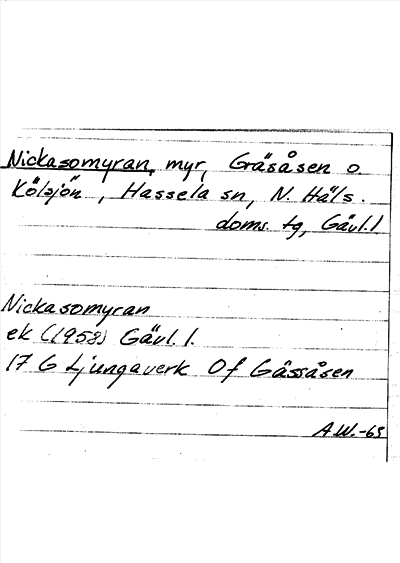 Nickasomyran, myr, Gräsåsen o.
Kölsjön, Hassela sn, N. Häls.
doms. tg, Gävl. l
Nickasomyran
ek (1958) Gävl. l.
17 G Ljungaverk 0 f Gässåsen
A.W.-65